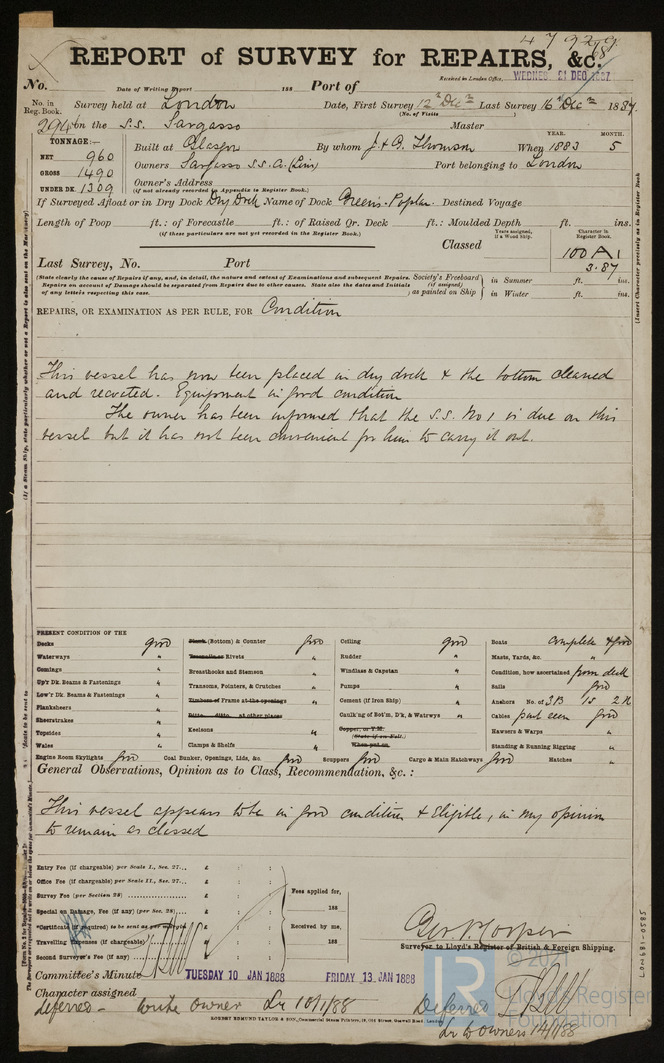 47929
REPORT of SURVEY for REPAIRS, &c. 68
Received in London Office, WEDNES. 21 DEC 1887
No. Date of Writing Report 188 Port of
No. in Reg. Book. Survey held at London Date, First Survey 12th Decr Last Survey 16th Decr 1887
(No. of Visits )
294 on the S.S. Sargasso Master
TONNAGE:— Built at Glasgow By whom J. & G. Thomson When 1883 5
YEAR. MONTH.
NET 960 Owners Sargasso S.S. Co. (Lim) Port belonging to London
GROSS 1490 Owner's Address
UNDER DK. 1309 (if not already recorded in Appendix to Register Book.)
If Surveyed Afloat or in Dry Dock Dry Dock Name of Dock Greens-Poplar Destined Voyage
Length of Poop ft.: of Forecastle ft.: of Raised Qr. Deck ft.: Moulded Depth ft. ins.
(if these particulars are not yet recorded in the Register Book.)
Years assigned, if a Wood Ship. Character in Register Book.
Classed 100 A 1
3.87
Last Survey, No. Port
(State clearly the cause of Repairs if any, and, in detail, the nature and extent of Examinations and subsequent Repairs.
Repairs on account of Damage should be separated from Repairs due to other causes. State also the dates and Initials
of any letters respecting this case.
Society's Freeboard (if assigned) as painted on Ship
in Summer ft. ins.
in Winter ft. ins.
REPAIRS, OR EXAMINATION AS PER RULE, FOR Condition
This vessel has now been placed in dry dock & the bottom cleaned
and recoated. Equipment in good condition
The owner has been informed that the S.S. No 1 is due on this
vessel but it has not been convenient for him to carry it out.
PRESENT CONDITION OF THE
Decks good
Waterways "
Comings "
Up'r Dk. Beams & Fastenings "
Low'r Dk. Beams & Fastenings "
Planksheers "
Sheerstrakes "
Topsides "
Wales "
Plank (Bottom) & Counter good
Treenails or Rivets "
Breasthooks and Stemson "
Transoms, Pointers, & Crutches "
Timbers of Frame at the openings "
Ditto ditto at other places
Keelsons "
Clamps & Shelfs "
Ceiling good
Rudder "
Windlass & Capstan "
Pumps "
Cement (if Iron Ship) "
Caulk'ng of Bot'm, D'k, & Watrwys "
Copper, or Y.M.
(State if on Felt.)
When put on
Boats complete & good
Masts, Yards, &c. "
Condition, how ascertained from deck
Sails good
Anchors No. of 3B 1S 2K
Cables part seen good
Hawsers & Warps "
Standing & Running Rigging "
Engine Room Skylights good Coal Bunker, Openings, Lids, &c. good Scuppers good Cargo & Main Hatchways good Hatches "
General Observations, Opinion as to Class, Recommendation, &c. :
This vessel appears to be in good condition & Eligible, in my opinion
to remain as classed
Entry Fee (if chargeable) per Scale I., Sec. 27... £ : :
Office Fee (if chargeable) per Scale II., Sec. 27... £ : :
Survey Fee (per Section 28) £ : :
Special on Damage, Fee (if any) (per Sec. 28) £ : :
*Certificate (if required) to be sent as per margin
Travelling Expenses (if chargeable) £ : :
Second Surveyor's Fee (if any) £ : :
Fees applied for,
188
Received by me,
188
Geo. P. Cooper
Surveyor to Lloyd's Register of British & Foreign Shipping.
Committee's Minute TUESDAY 10 JAN 1888 FRIDAY 13 JAN 1888
Character assigned
deferred - write owner Lr 10/1/88 Deferred
Lr to owners 14/1/88
LORBEY EDMUND TAYLOR & SON, Commercial Steam Printers
LON681-0585
© 2021
LR Lloyd's Register
Foundation